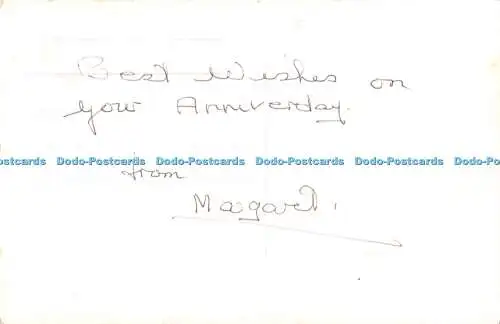 Best Wishes on
your Anniverday.
Postcards Dodo-Postcards Dodo-Postcards Dodo-Postcards Dodo-Postcards Dodo
from
Maagaret.